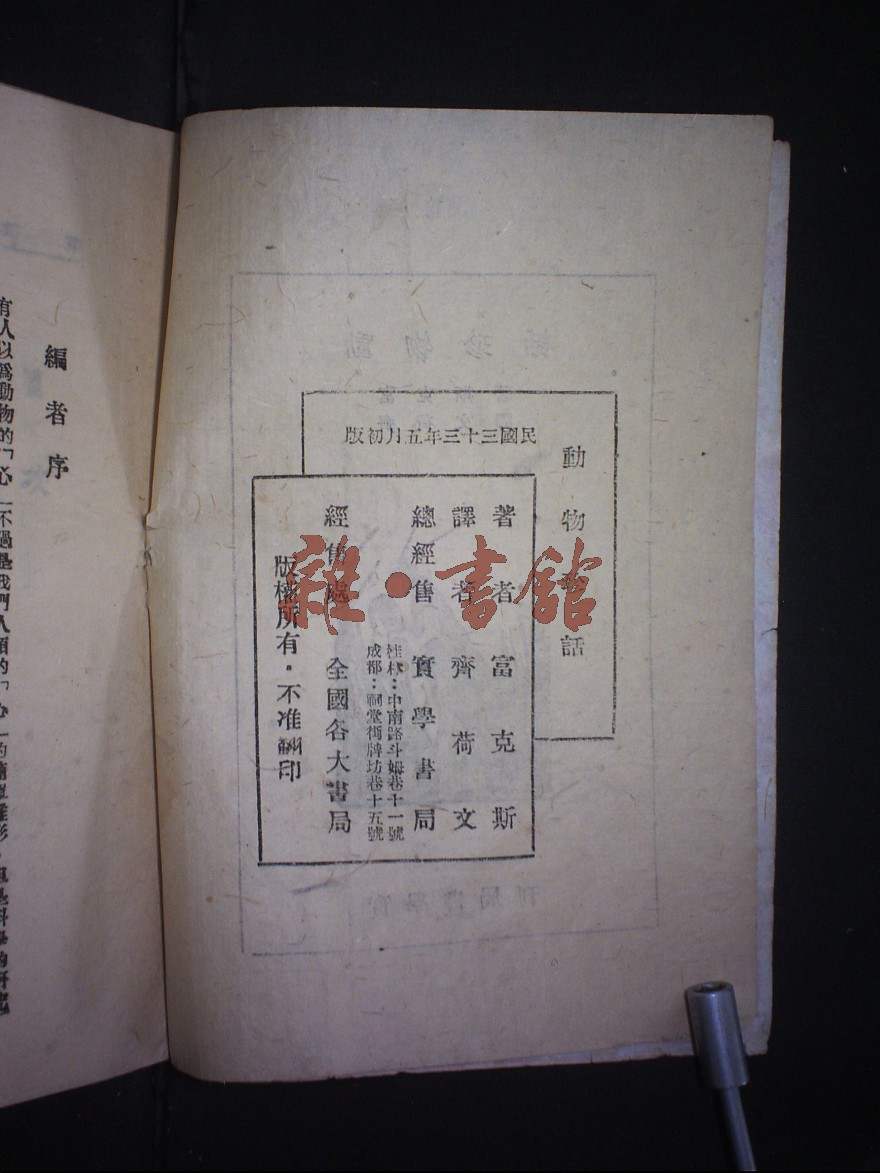 動物珍話
民國三十三年五月初版
著者 富克斯
譯者 齊荷文
總經售 實學書局
桂林：中南路斗姆巷十一號
成都：祠堂街牌坊巷十五號
經售處 全國各大書局
版權所有・不准翻印
編者序
有人以爲動物的「心」不過是我們人類的「心」的
雜・書館